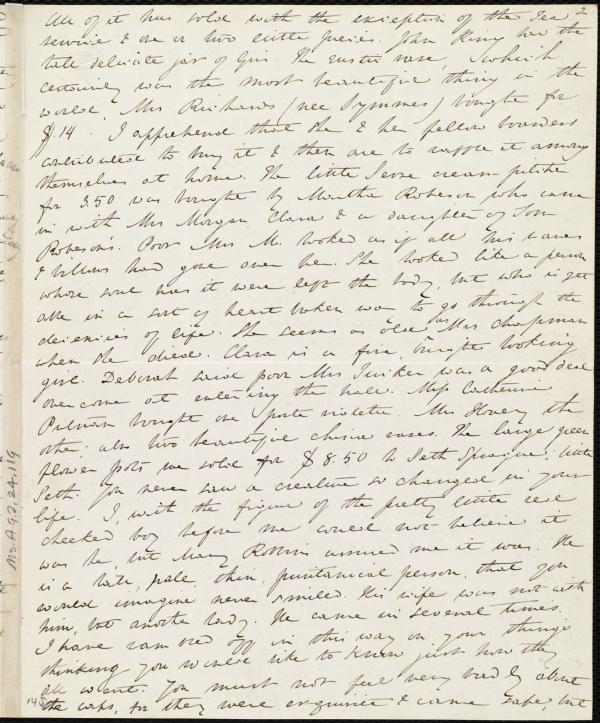 2
All of it has sold with the exception of the Tea
service & one or two little pieces. John King has the
tall delicate jar of Gris. The rustic vase, which
certainly was the most beautiful thing in the
world, Mrs Richards (nee Symmes) bought for
$14. I apprehend that she & her fellow boarders
contributed to buy it & then are to raffle it among
themselves at home. The little Sevre cream pitcher
for 3.50 was bought by Martha Robeson who came
in with Mrs Morgan, Clara & a daughter of Tom
Robeson's. Poor Mrs M. looked as if all his waves
& billows had gone over her. She looked like a person
whose soul has it were left the body, but who is yet
able in a sort of heart broken way to go through the
decencies of life. She seems as old as Mrs Chapman
when she died. Clara is a fine, bright looking
girl. Deborah said poor Mrs Tucker was a good deal
overcome at entering the hall. Miss Catherine
Putnam bought one porte violette, Mrs Hovey the
other; also two beautiful china vases. The large green
flower pots we sold for $8.50 to Seth Sprague, little
Seth. You never saw a creature so changed in your
life. I, with the figure of the pretty little rose
cheeked boy before me could not believe it
was he, but Mary Rollins assured me it was. He
is a tall, pale, thin, puritanical person, that you
would imagine never smiled. His wife was not with
him, but another lady. He came in several times.
I have rambled off in this way on your things
thinking you would like to know just how they
all went. You must not feel very badly about
the caps, for they were exquisite & came safe, but
Ms.A.9.2.24.119